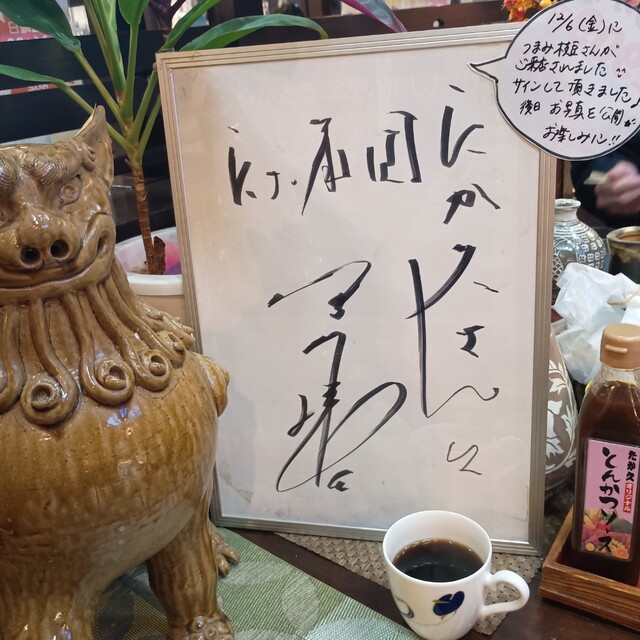 12/6(金)に
つまみ枝豆さんが
ご来店されました!!
サインして頂きました
後日お写真を公開
お楽しみに!!
たか久さん江
たか久
オリジナル
とんかつソース